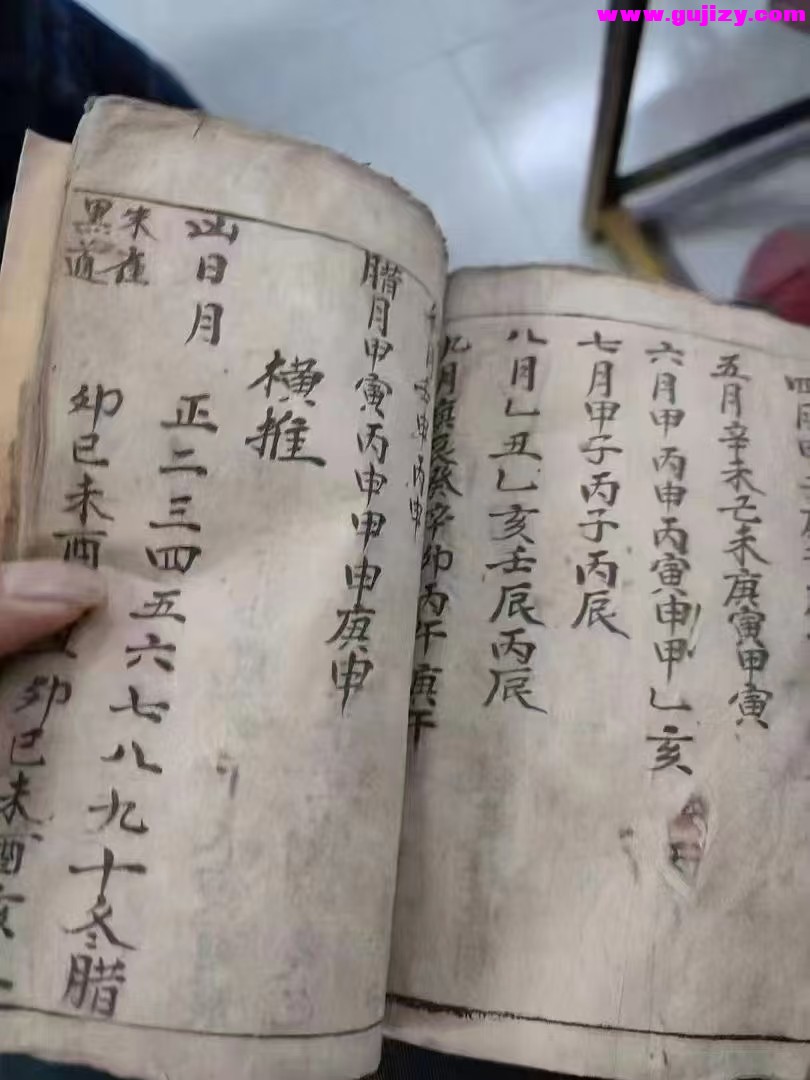 www.gujizy.com
五月辛未己未庚寅甲寅
六月甲丙申丙寅申甲乙亥
七月甲子丙子丙辰
八月乙丑乙亥壬辰丙辰
九月庚辰癸辛卯丙午庚午
腊月甲寅丙申甲申庚申
横推
凶日月 正二三四五六七八九十冬腊
朱雀黑道 卯巳未酉 卯巳未酉亥